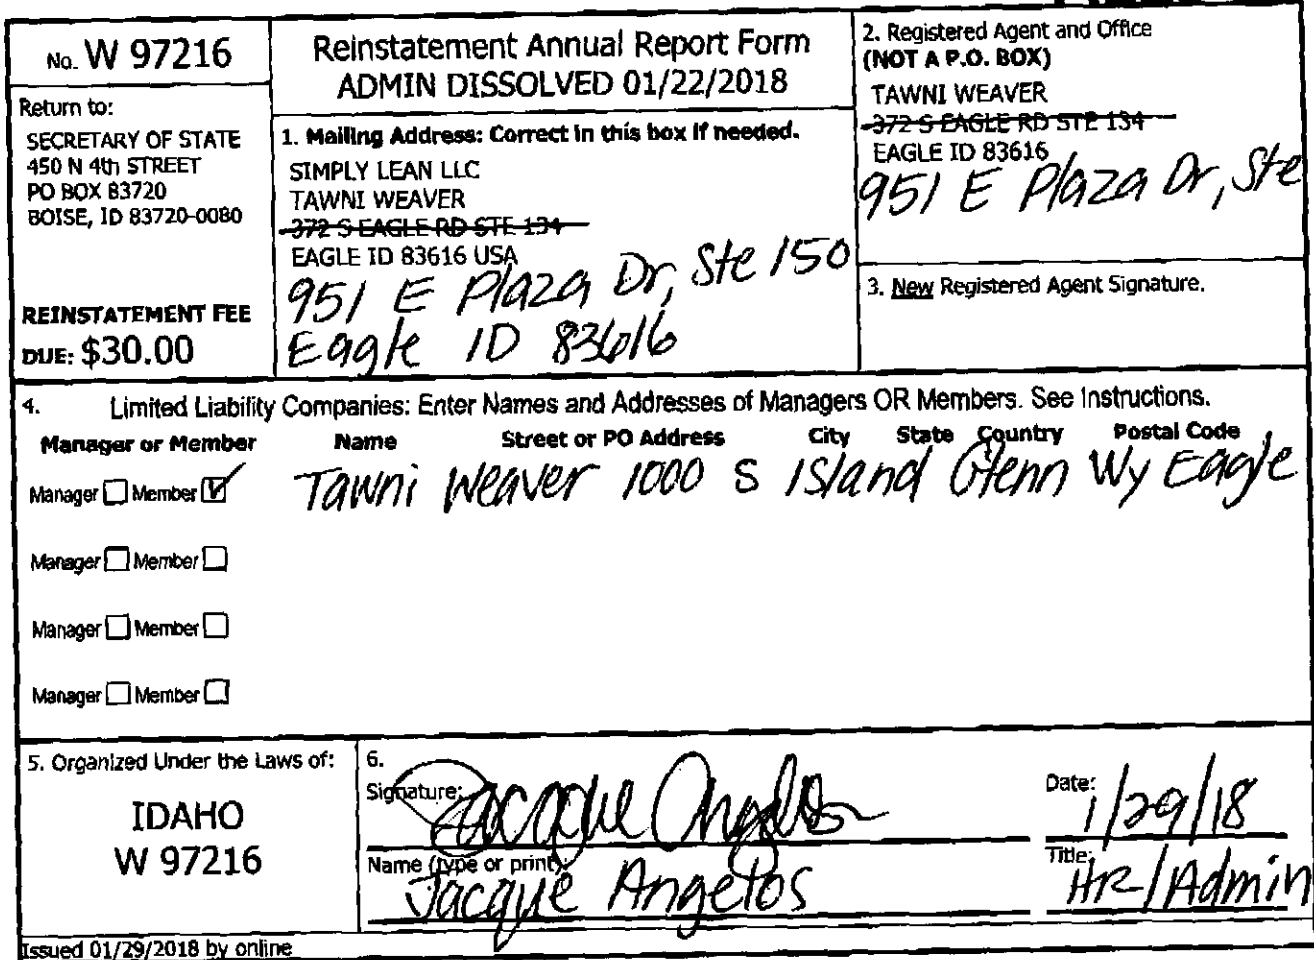 No. W 97216
Return to:
SECRETARY OF STATE
450 N 4th STREET
PO BOX 83720
BOISE, ID 83720-0080
REINSTATEMENT FEE
DUE: $30.00
Reinstatement Annual Report Form
ADMIN DISSOLVED 01/22/2018
1. Mailing Address: Correct in this box if needed.
SIMPLY LEAN LLC
TAWNI WEAVER
372 S EAGLE RD STE 134
EAGLE ID 83616 USA
951 E Plaza Dr, Ste 150
Eagle ID 83616
2. Registered Agent and Office
(NOT A P.O. BOX)
TAWNI WEAVER
372 S EAGLE RD STE 134
EAGLE ID 83616
951 E Plaza Dr, Ste
3. New Registered Agent Signature.
4. Limited Liability Companies: Enter Names and Addresses of Managers OR Members. See Instructions.
Manager or Member Name Street or PO Address City State Country Postal Code
Manager Member Tawni Weaver 1000 S Island Glenn Wy Eagle
Manager Member
Manager Member
Manager Member
5. Organized Under the Laws of:
IDAHO
W 97216
6.
Signature: Jacque Angelos
Date: 1/29/18
Name (type or print): Jacque Angelos
Title: HR/Admin
Issued 01/29/2018 by online